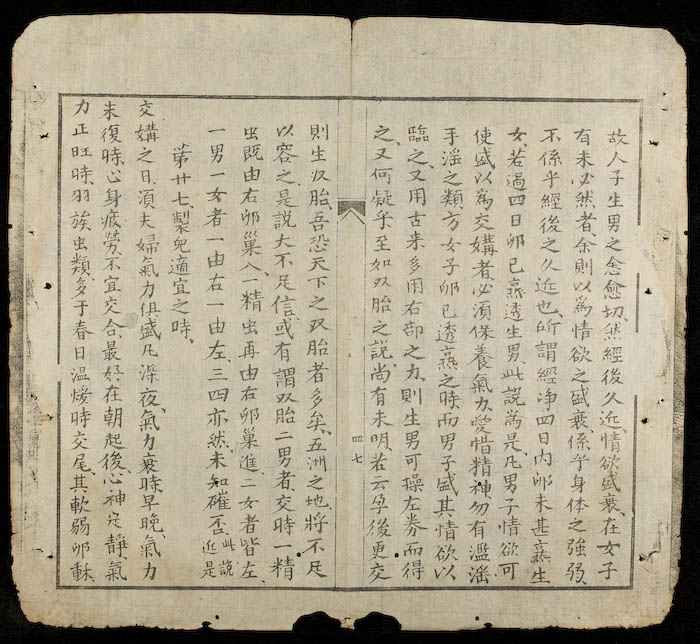 故人子生男之念愈切、然經後久近、情欲盛衰、在女子
有未必然者、余則以爲情欲之盛衰係乎身体之強弱、
不係乎經後之久近也、所謂經净四日内卵未甚熹生
女、若過四日卵已熹透生男、此説爲是、凡男子情欲可
使盛以爲交媾者必須保養氣力、愛惜精神勿有濫淫
手淫之類方女子卵已透熹之時而男子盛其情欲以
臨之、又用古来多用右部之力、則生男可操左券而得
之、又何疑乎至如双胎之説、尚有未明、若云孕後更交
四七
則生双胎、吾恐天下之双胎者多矣、五洲之地、將不足
以容之、是説大不足信、或有謂双胎二男者交時一精
虫既由右卵巢入、一精虫再由右卵巢進、二女者皆左、
一男一女者一由右一由左、三四亦然、未知確否、此説近是
第廿七、製兒適宜之時、
交媾之日、須夫婦氣力俱盛、凡深夜、氣力衰時早晚、氣力
未復時、心身疲勞、不宜交合、最好在朝起後、心神定靜、氣
力正旺時、羽族虫類多于春日温煖時交尾、其軟弱卵稣、